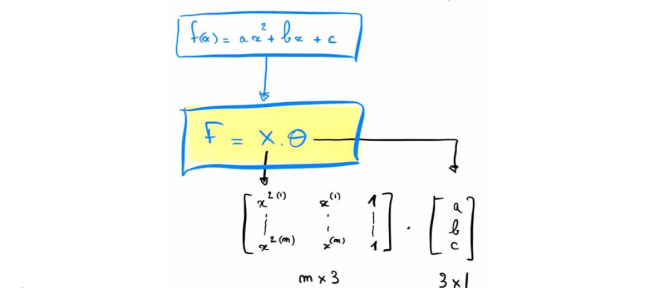 f(x) = ax² + bx + c
F = X.θ
x²⁽¹⁾ x⁽¹⁾ 1
x²⁽ᵐ⁾ x⁽ᵐ⁾ 1
.
a
b
c
m x 3
3 x 1